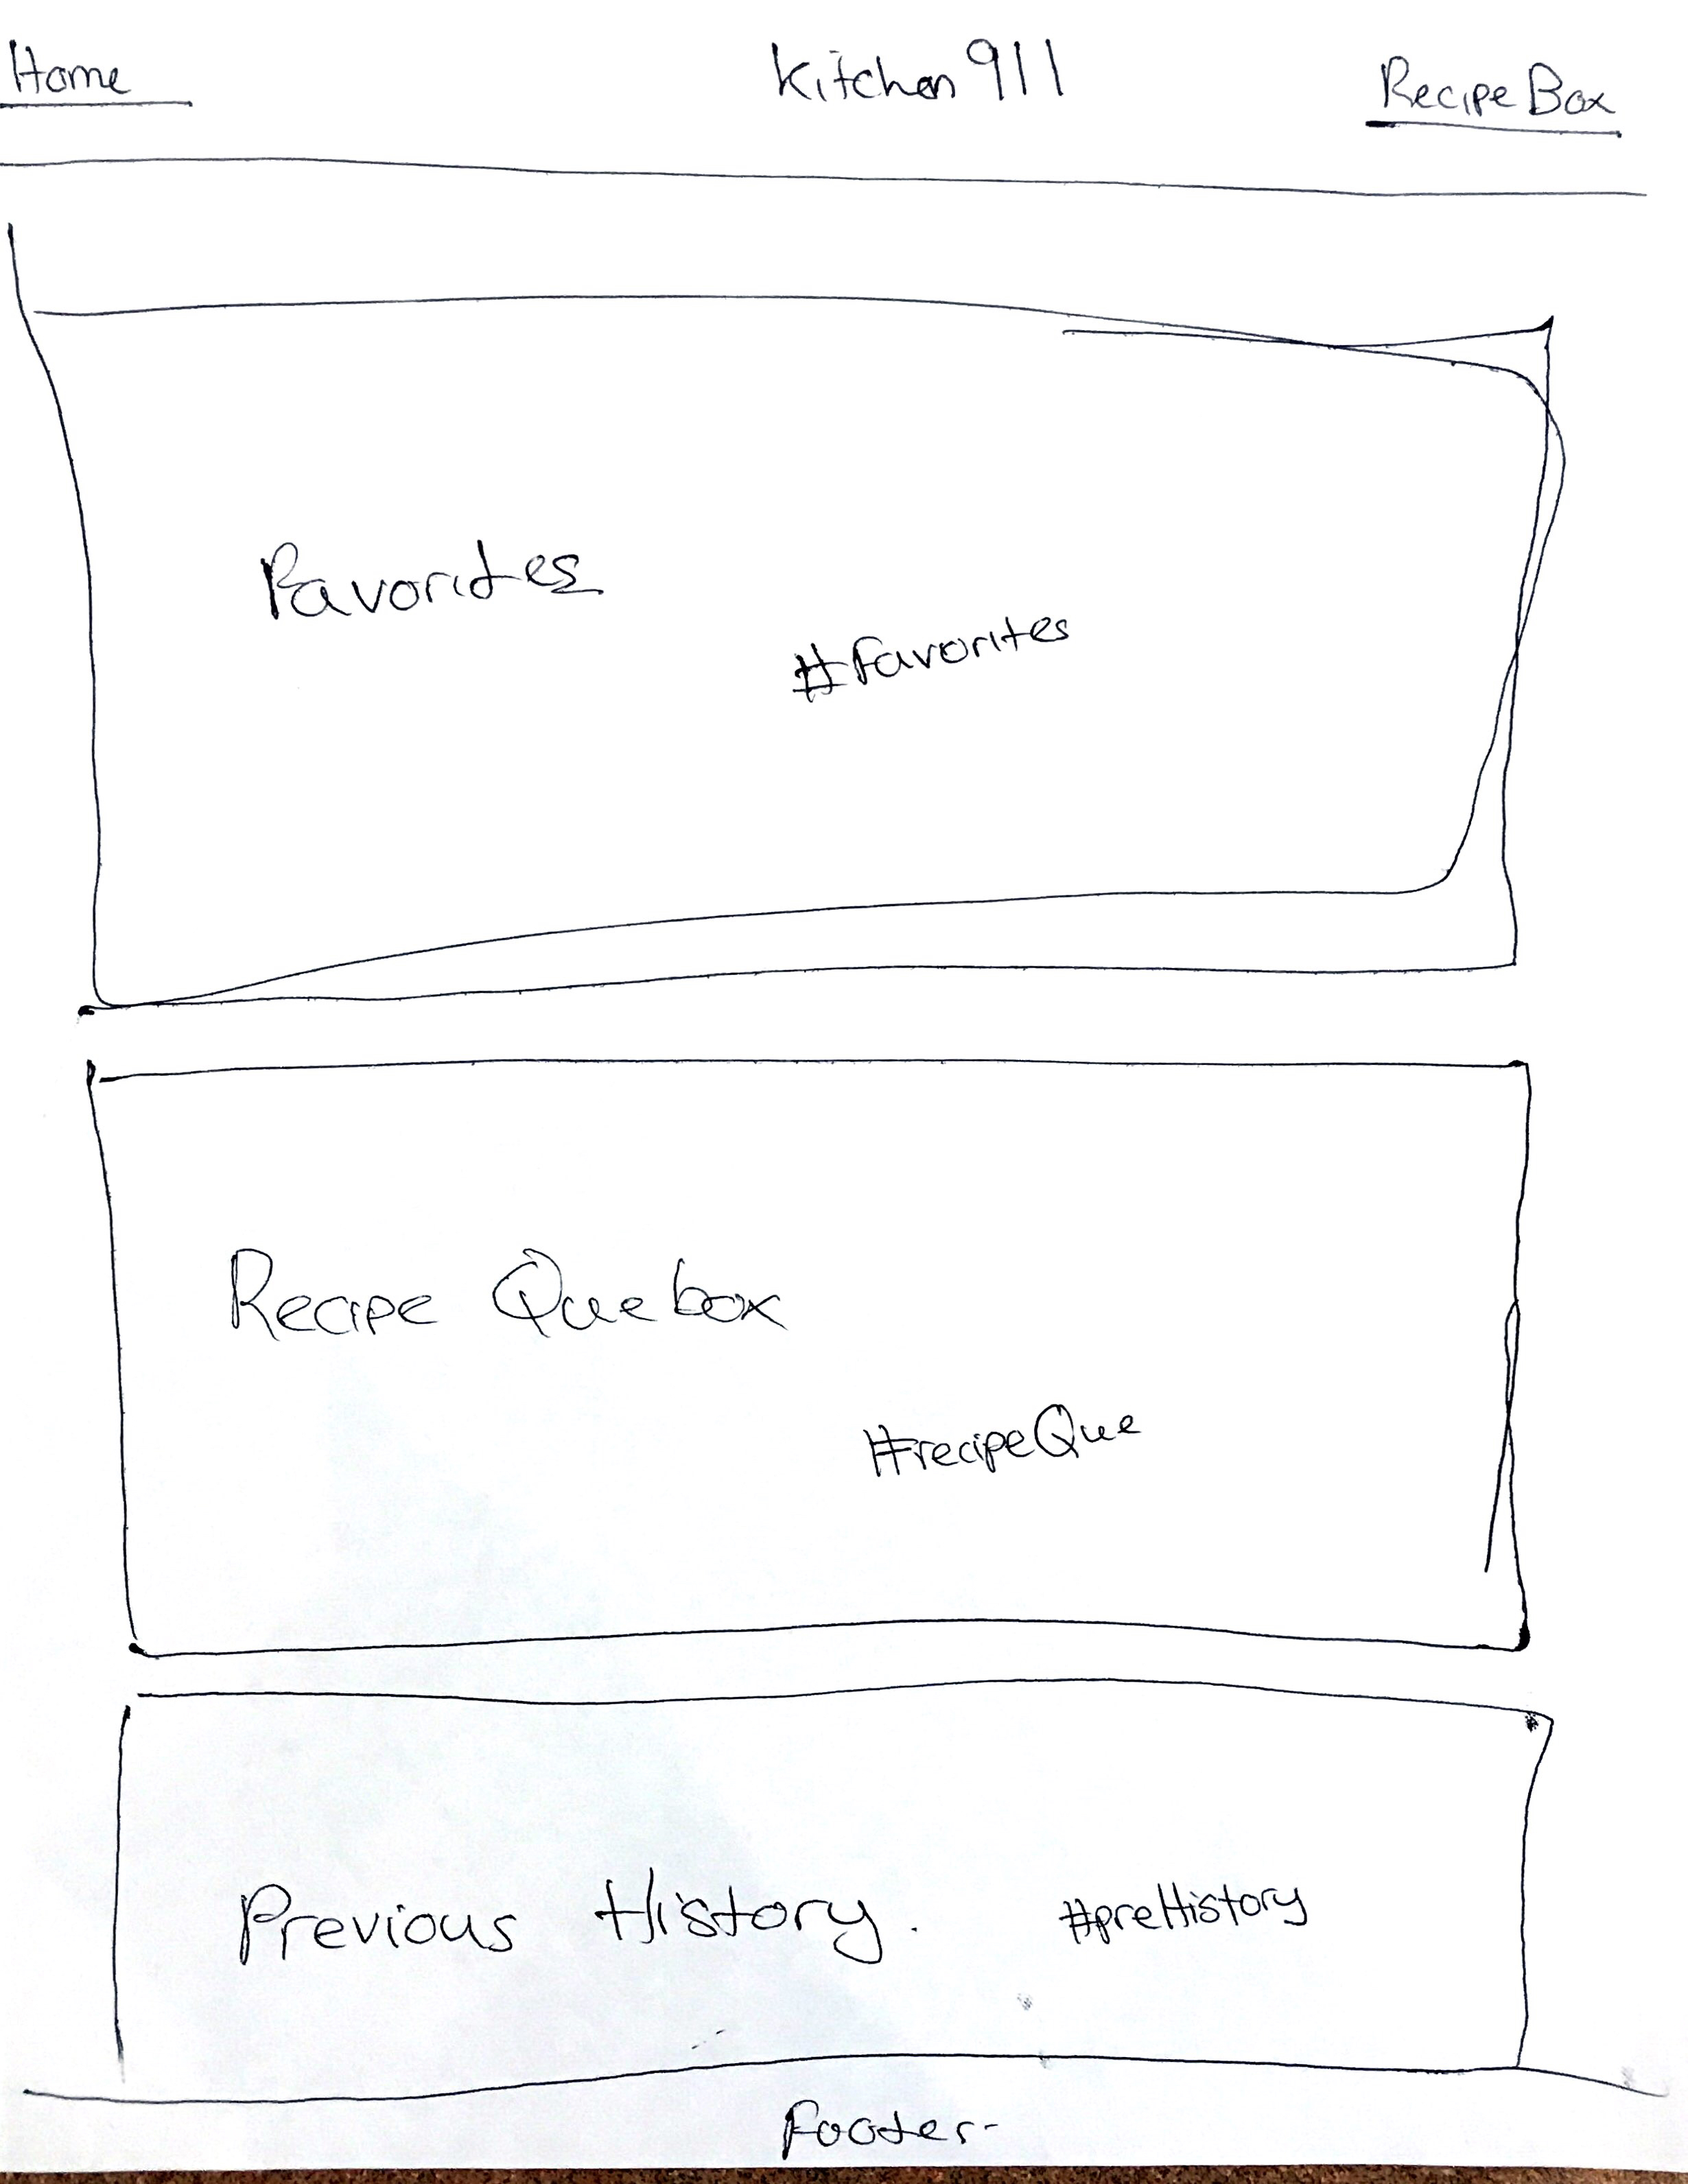 Home Kitchen 911 Recipe Box
Favorites
#favorites
Recipe Que box
#recipeQue
Previous History. #preHistory
Footer-